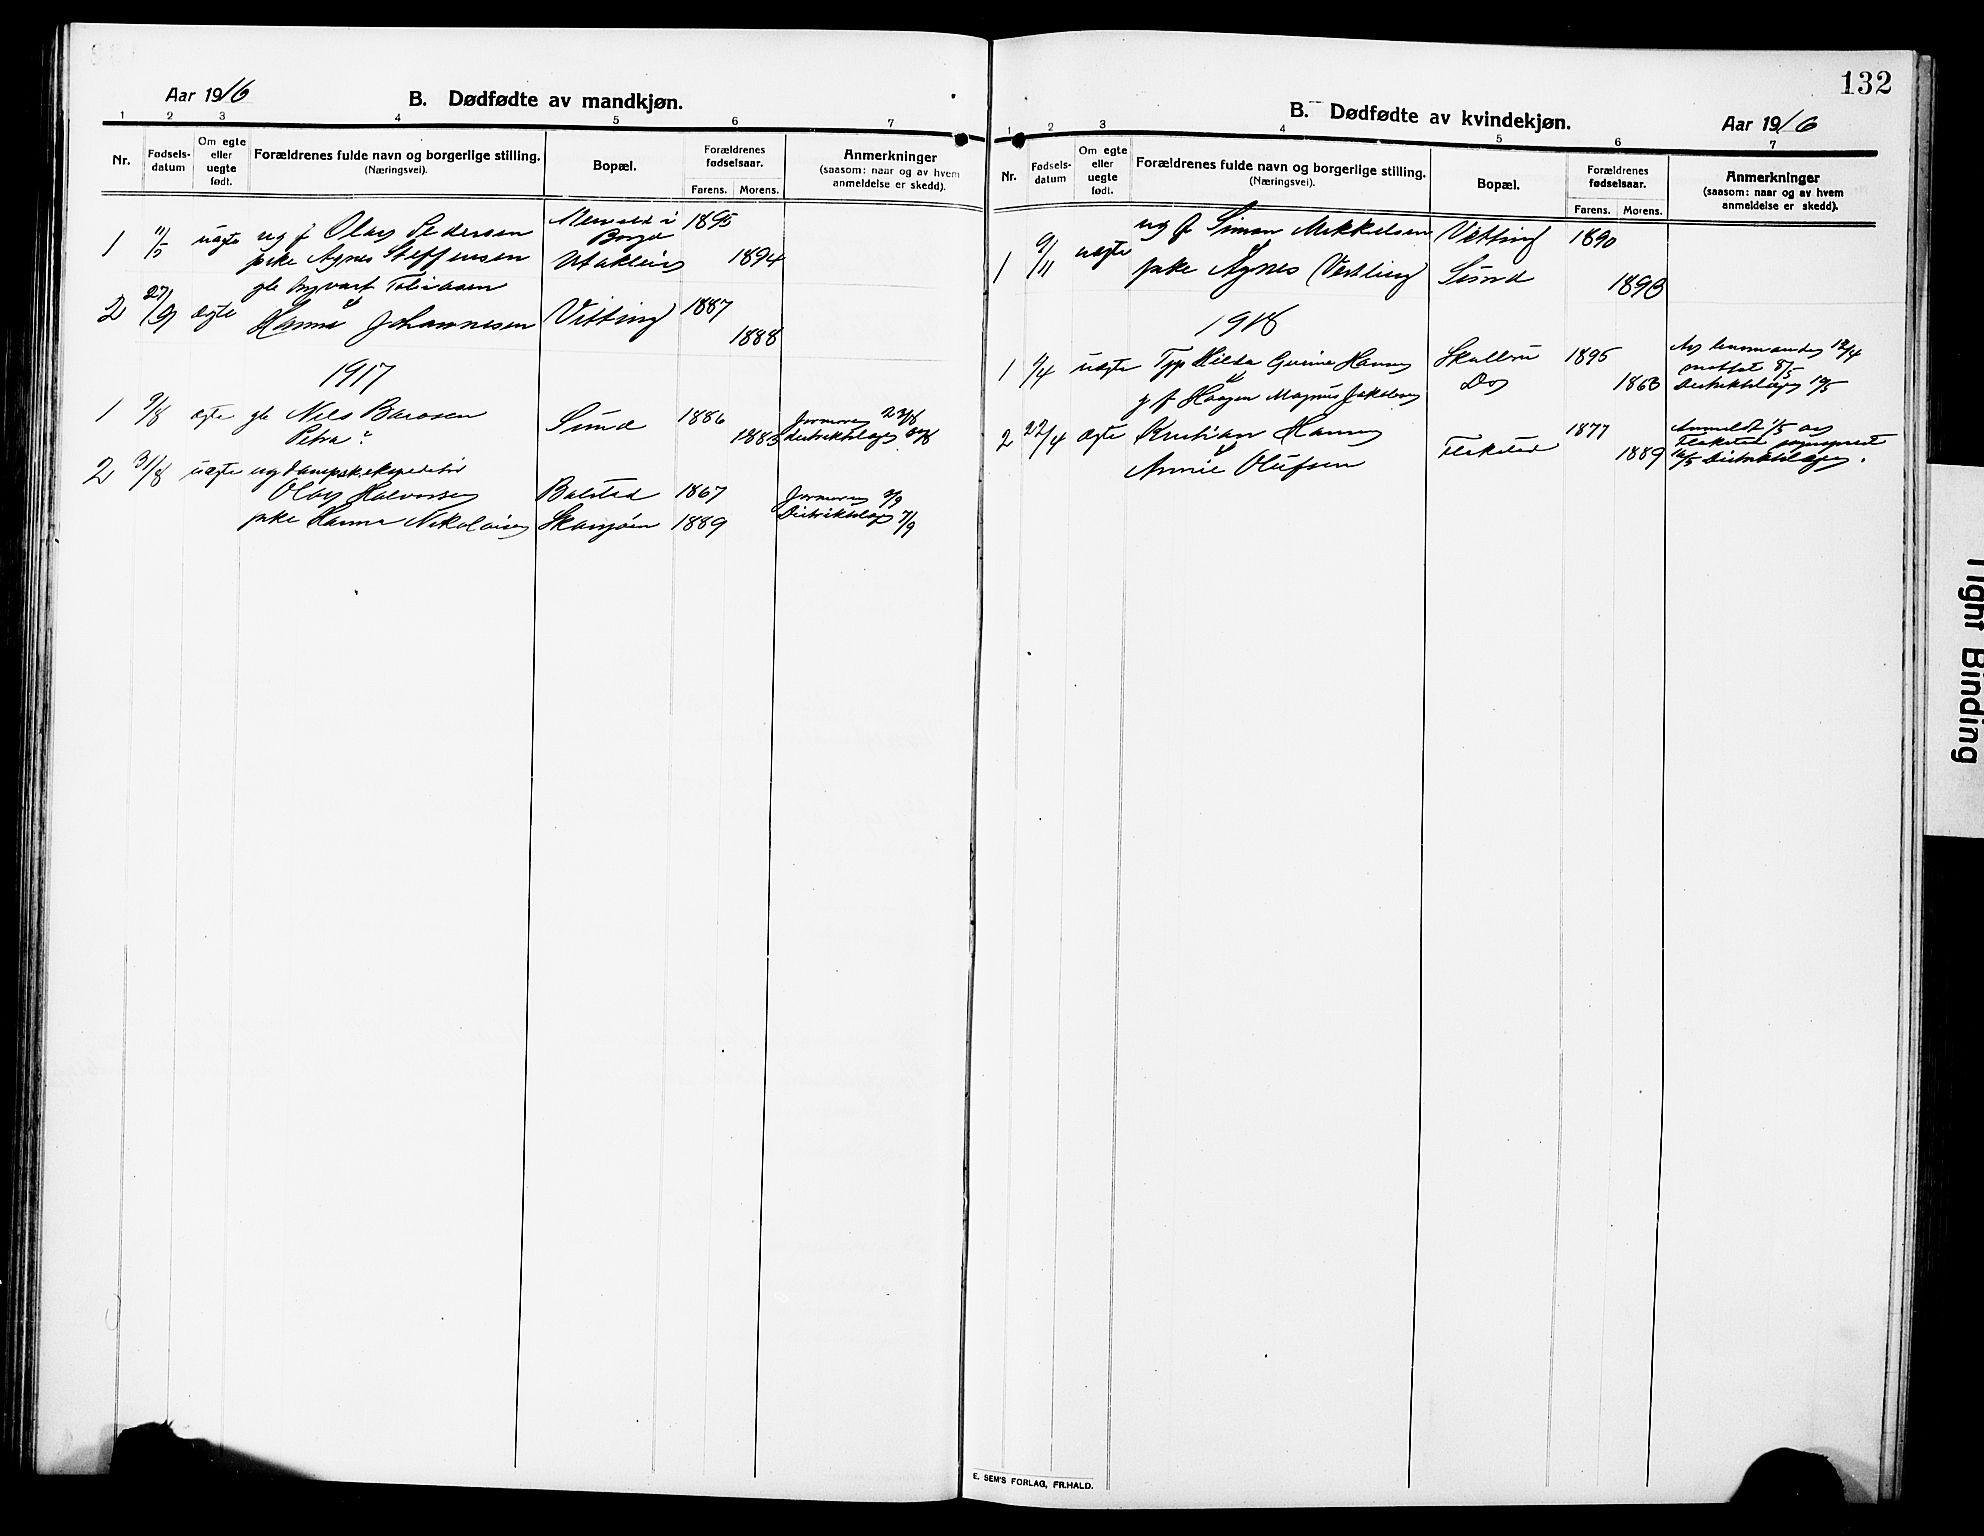 Aar 1916
B. Dødfødte av mandkjøn.
1 2 3 4 5 6 7
Nr.
Fødsels-
datum
Om egte
eller
uegte
født.
Forældrenes fulde navn og borgerlige stilling.
(Næringsvei).
Bopæl.
Forældrenes
fødselsaar.
Farens. Morens.
Anmerkninger
(saasom: naar og av hvem
anmeldelse er skedd).
1 11/5 uægte ug f Olav Pedersen 1895
pike Agnes Steffensen Utakleiv 1894
gb Ingvart Tobiasen
2 27/9 ægte Hanna Johannesen Vitting 1887
1888
1917
1 9/8 ægte gb Nils Barosen Sund 1886 Jormoren 23/8
Petra 1883 distriktslæge
2 31/8 uægte ug dampsk.ekspeditør
Olav Halvorsen Balstad 1867 Jormoren 3/9
pike Hanna Nikolaisen 1889 Distriktslæge 7/9
132
B. Dødfødte av kvindekjøn.
Aar 1916
1 2 3 4 5 6 7
Nr.
Fødsels-
datum
Om egte
eller
uegte
født.
Forældrenes fulde navn og borgerlige stilling.
(Næringsvei).
Bopæl.
Forældrenes
fødselsaar.
Farens. Morens.
Anmerkninger
(saasom: naar og av hvem
anmeldelse er skedd).
1 9/11 uægte ug f Simon Mikkelsen Vitting 1890
pike Agnes Sund 1893
1918
1 1/4 uægte Hilda Hansen 1895 Av lensmanden 12/4
g f Haagen Magnus Jakobsen Do 1863 mottat 8/5
Distriktslægen 10/5
2 22/4 ægte Kristian Hansen Flakstad 1877 Anmeldt 1/5 av
Annie Olufsen 1889 Flakstad sogneprest
Distriktslægen.
E. SEM'S FORLAG, FR.HALD.
Tight Binding